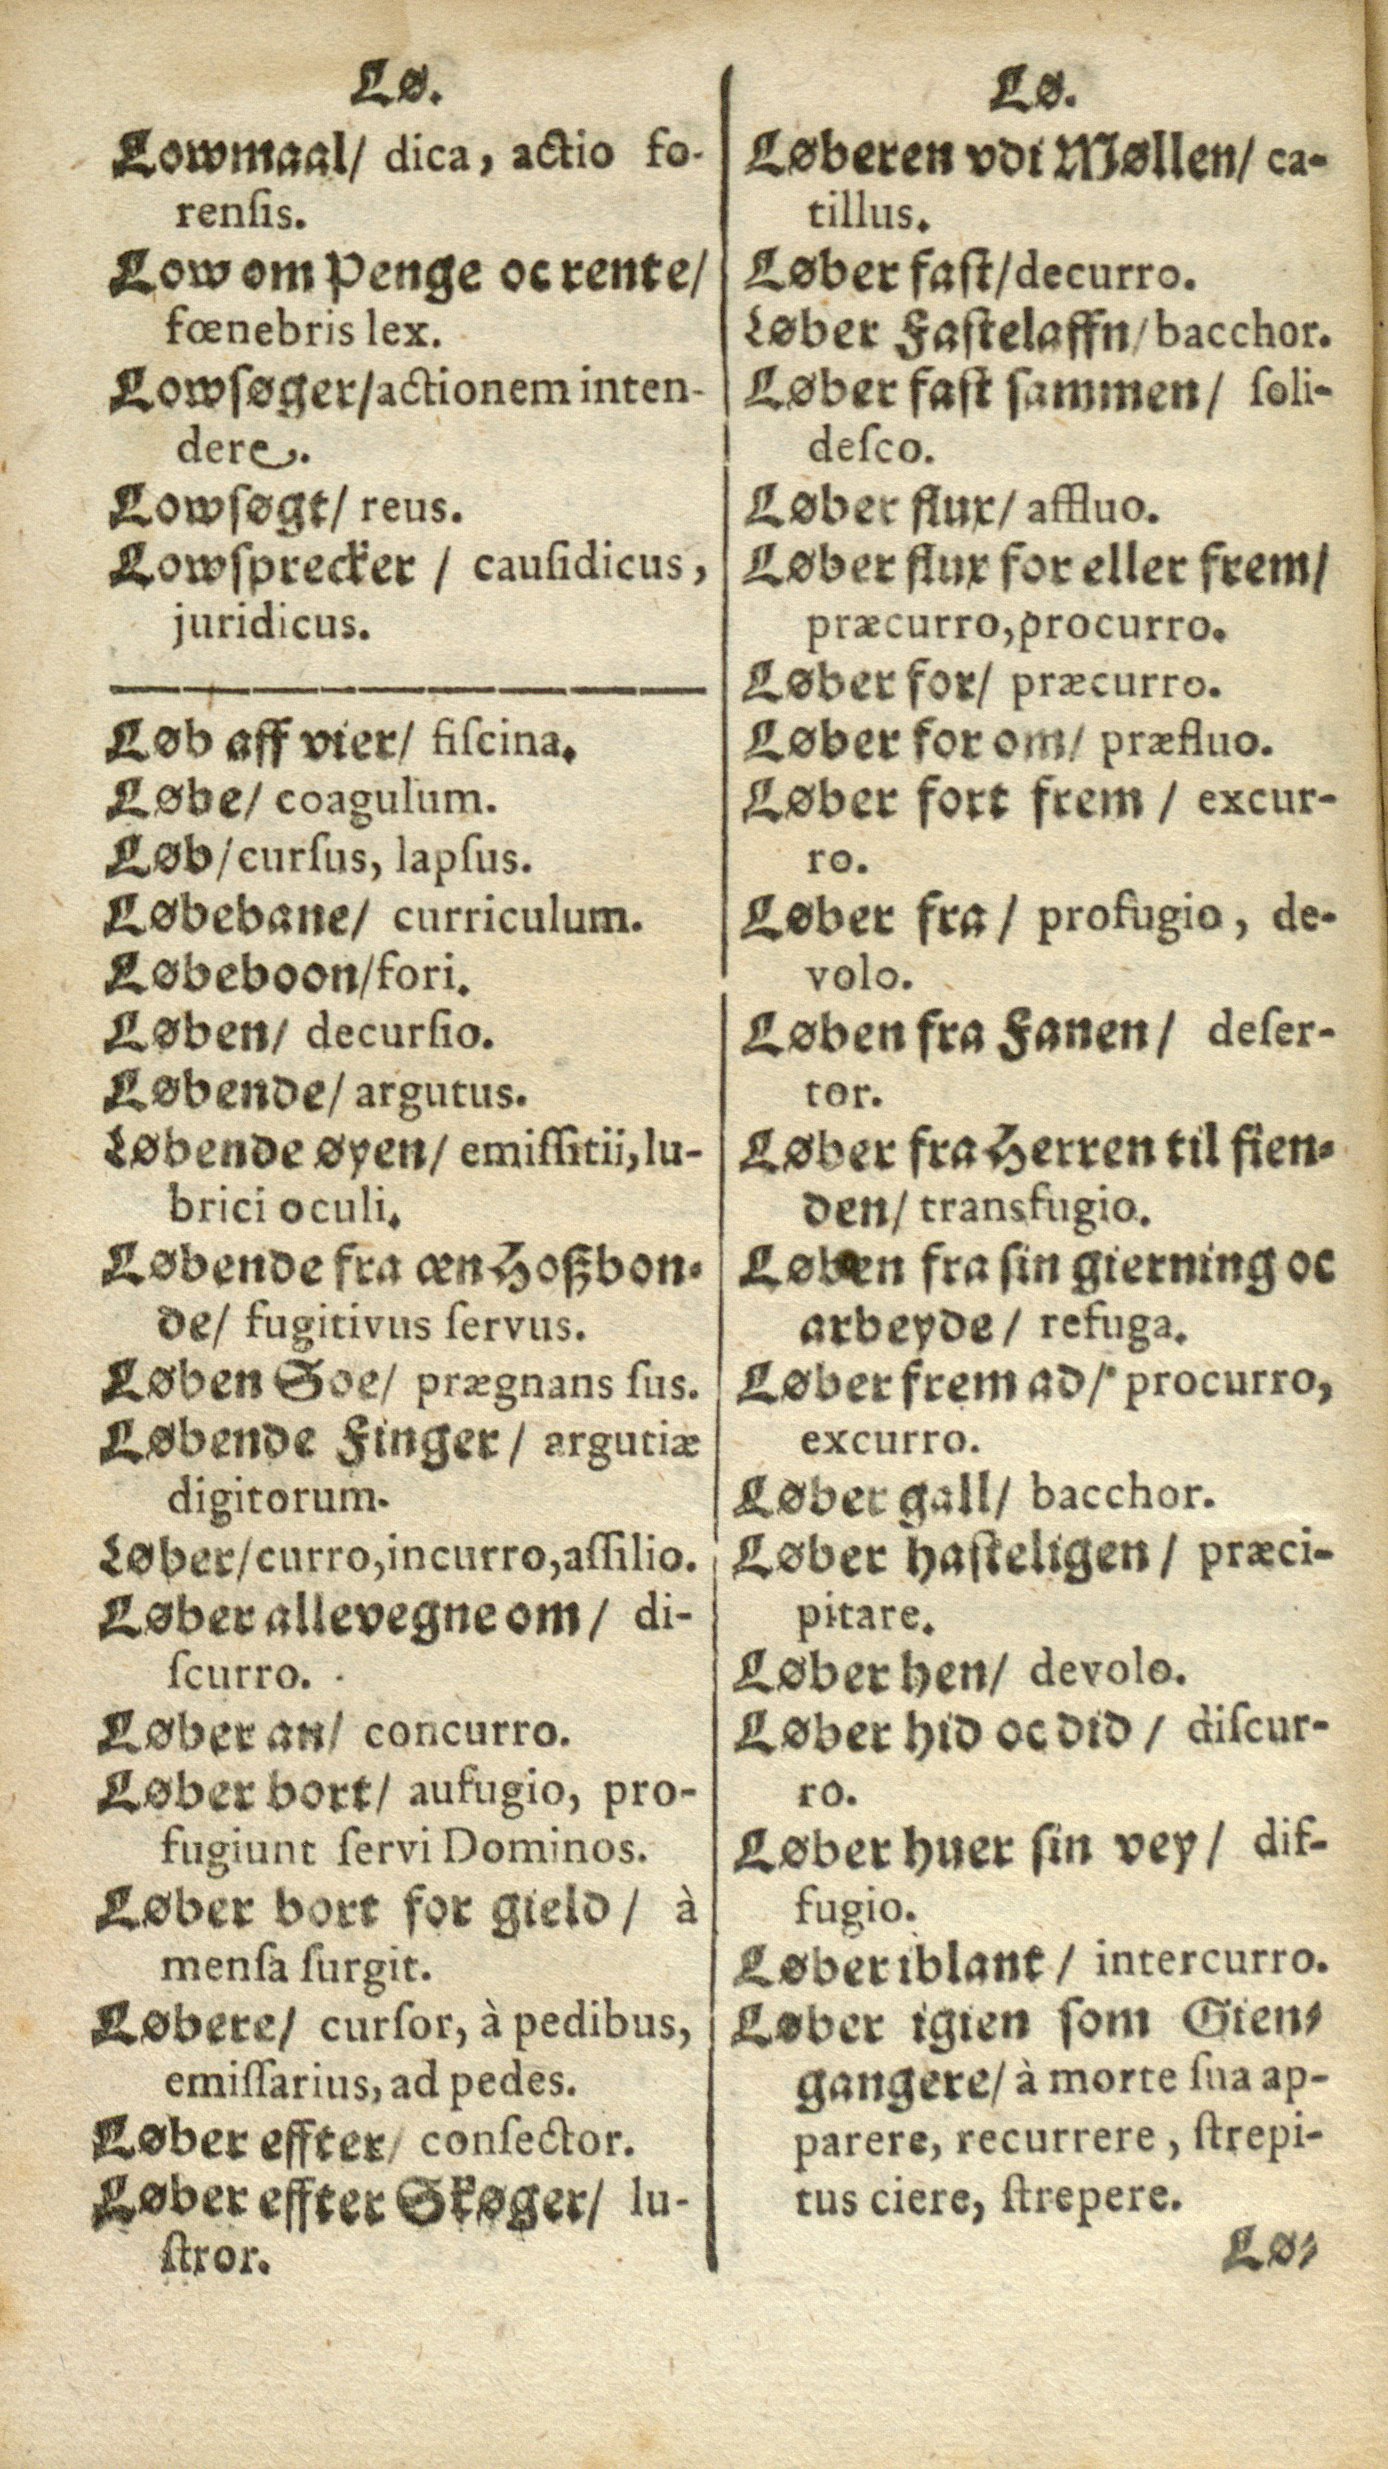 Lø.
Lowmaal/ dica, actio fo-
renſis.
Low om Penge oc rente/
fœnebris lex.
Lowſøger/actionem inten-
dere.
Lowſøgt/ reus.
Lowſprecker / cauſidicus,
juridicus.
Løb aff vier/ fiſcina.
Løbe/ coagulum.
Løb/curſus, lapſus.
Løbebane/ curriculum.
Løbeboon/fori.
Løben/ decurſio.
Løbende/ argutus.
Løbende øyen/ emiſſitii, lu-
brici oculi.
Løbende fra æn Hoßbon-
de/ fugitivus ſervus.
Løben Soe/ prægnans ſus.
Løbende Finger/ argutiæ
digitorum.
Løber/curro,incurro,aſſilio.
Løber allevegne om/ di-
ſcurro.
Løber an/ concurro.
Løber bort/ aufugio, pro-
fugiunt ſervi Dominos.
Løber bort for gield/ à
menſa ſurgit.
Løbere/ curſor, à pedibus,
emiſſarius, ad pedes.
Løber effter/ conſector.
Løber effter Skøger/ lu-
ſtror.
Lø.
Løberen vdi Møllen/ ca-
tillus.
Løber faſt/decurro.
Løber Faſtelaffn/bacchor.
Løber faſt ſammen/ ſoli-
deſco.
Løber flux/ affluo.
Løber flux for eller frem/
præcurro,procurro.
Løber for/ præcurro.
Løber for om/ præfluo.
Løber fort frem / excur-
ro.
Løber fra / profugio, de-
volo.
Løben fra Fanen/ deſer-
tor.
Løber fra Herren til fien-
den/ transfugio.
Løben fra ſin gierning oc
arbeyde/ refuga.
Løber frem ad/ procurro,
excurro.
Løber gall/ bacchor.
Løber haſteligen/ præci-
pitare.
Løber hen/ devolo.
Løber hid oc did / diſcur-
ro.
Løber huer ſin vey/ dif-
fugio.
Løber iblant/ intercurro.
Løber igien ſom Gien-
gangere/ à morte ſua ap-
parere, recurrere, ſtrepi-
tus ciere, ſtrepere.
Lø-